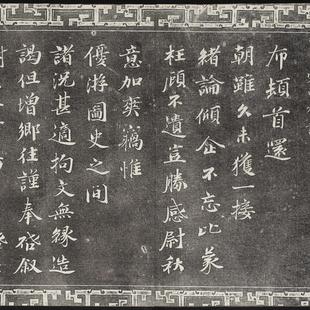 布頓首還
朝雖久未獲一接
緒論傾企不忘比蒙
枉顧不遺豈勝感尉秋
意加爽竊惟
優游圖史之間
諸況甚適拘文無緣造
謁但增鄉往謹奉啓叙